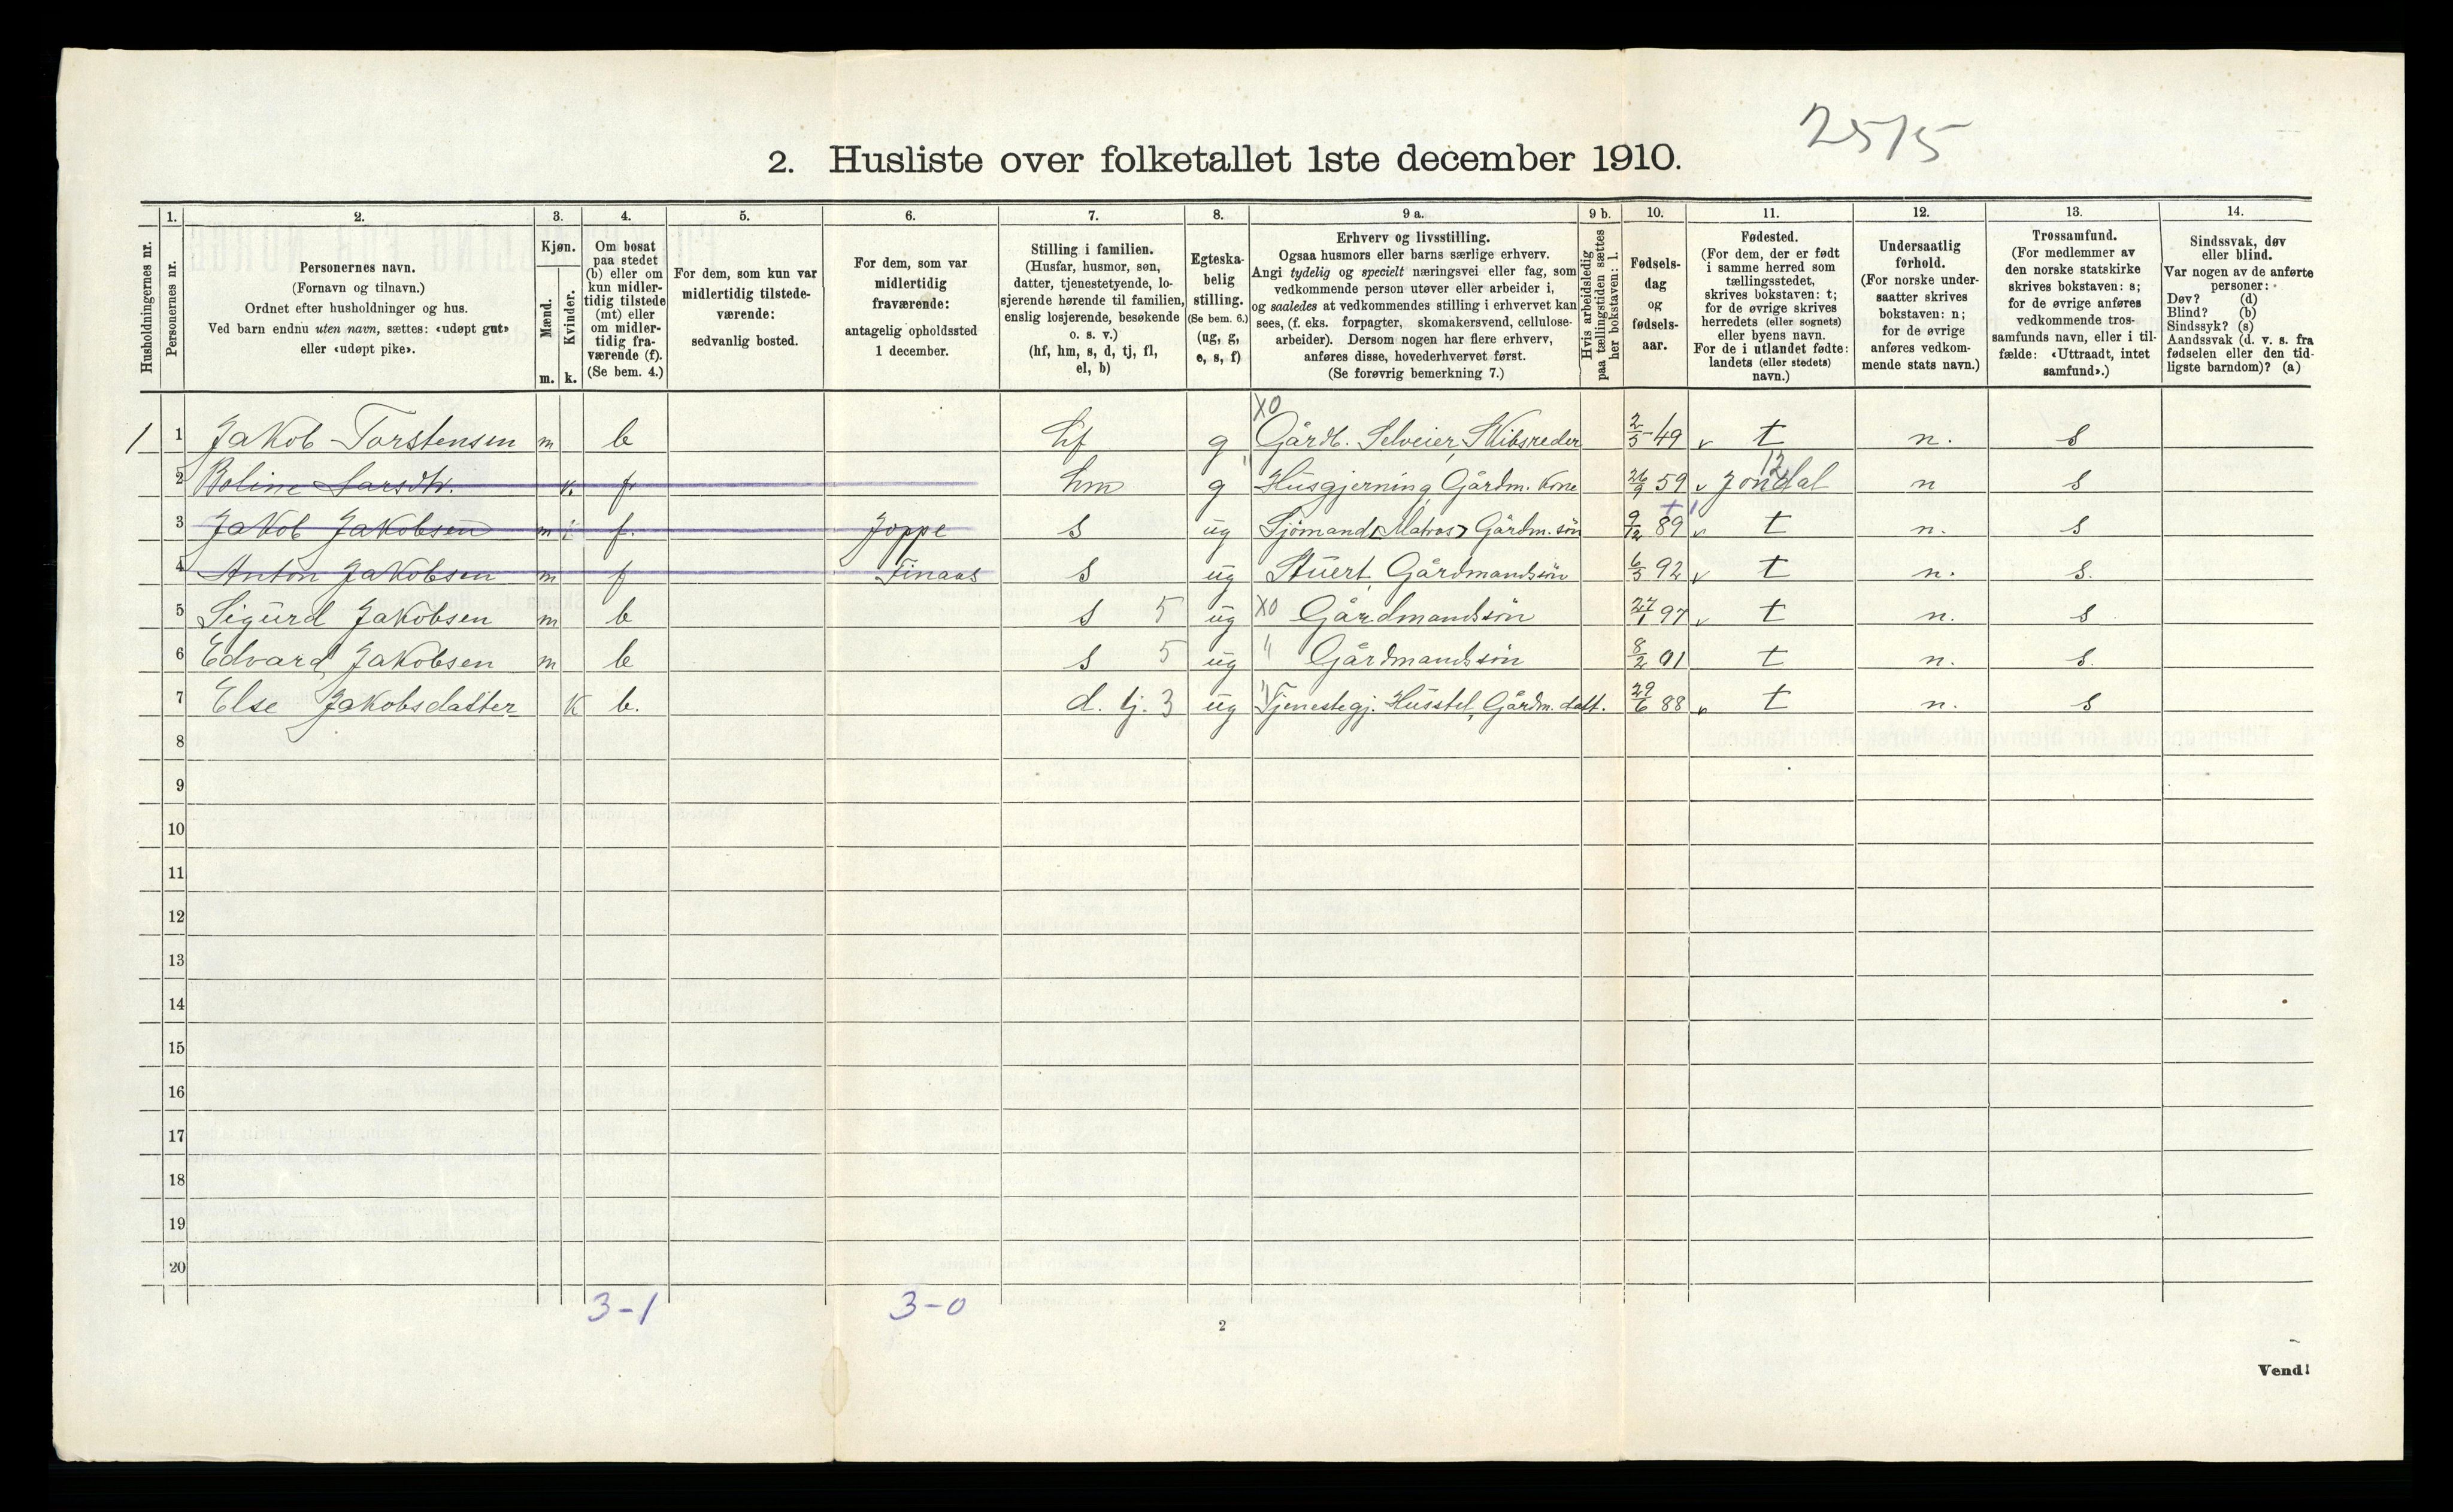 2515
2. Husliste over folketallet 1ste december 1910.
Husholdningernes nr.
1. Personernes nr.
2. Personernes navn.
(Fornavn og tilnavn.)
Ordnet efter husholdninger og hus.
Ved barn endnu uten navn, sættes: «udøpt gut»
eller «udøpt pike».
3. Kjøn.
Mænd. m.
Kvinder. k.
4. Om bosat
paa stedet
(b) eller om
kun midler-
tidig tilstede
(mt) eller
om midler-
tidig fra-
værende (f).
(Se bem. 4.)
5. For dem, som kun var
midlertidig tilstede-
værende:
sedvanlig bosted.
6. For dem, som var
midlertidig
fraværende:
antagelig opholdssted
1 december.
7. Stilling i familien.
(Husfar, husmor, søn,
datter, tjenestetyende, lo-
sjerende hørende til familien,
enslig losjerende, besøkende
o. s. v.)
(hf, hm, s, d, tj, fl,
el, b)
8. Egteska-
belig
stilling.
(Se bem. 6.)
(ug, g,
e, s, f)
9 a. Erhverv og livsstilling.
Ogsaa husmors eller barns særlige erhverv.
Angi tydelig og specielt næringsvei eller fag, som
vedkommende person utøver eller arbeider i,
og saaledes at vedkommendes stilling i erhvervet kan
sees, (f. eks. forpagter, skomakersvend, cellulose-
arbeider). Dersom nogen har flere erhverv,
anføres disse, hovederhvervet først.
(Se forøvrig bemerkning 7.)
9 b. Hvis arbeidsledig
paa tællingstiden sættes
her bokstaven: l.
10. Fødsels-
dag
og
fødsels-
aar.
11. Fødested.
(For dem, der er født
i samme herred som
tællingsstedet,
skrives bokstaven: t;
for de øvrige skrives
herredets (eller sognets)
eller byens navn.
For de i utlandet fødte:
landets (eller stedets)
navn.)
12. Undersaatlig
forhold.
(For norske under-
saatter skrives
bokstaven: n;
for de øvrige
anføres vedkom-
mende stats navn.)
13. Trossamfund.
(For medlemmer av
den norske statskirke
skrives bokstaven: s;
for de øvrige anføres
vedkommende tros-
samfunds navn, eller i til-
fælde: «Uttraadt, intet
samfund».)
14. Sindssvak, døv
eller blind.
Var nogen av de anførte
personer:
Døv? (d)
Blind? (b)
Sindssyk? (s)
Aandssvak (d. v. s. fra
fødselen eller den tid-
ligste barndom)? (a)
1 1 Jakob Torstensen m b hf g XO Gårdb. Selveier, Skibsreder 2/5-49 v t n. s
2 Boline Larsdtr. k. f hm g " Husgjerning, Gårdm. Kone 26/9 59 v Jondal 12 n s
3 Jakob Jakobsen m f. Joppe s ug Sjömand (Matros) Gårdm. sön 9/12 89 v t n. s
4 Anton Jakobsen m f Finaas s ug Stuert, Gårdmandsön 6/5 92 v t n. s.
5 Sigurd Jakobsen m b s 5 ug XO Gårdmandsön 27/1 97 v t n. s
6 Edvard Jakobsen m b s 5 ug " Gårdmandsön 8/2 01 t n. s.
7 Else Jakobsdatter K b. d. tj. 3 ug " Tjenestegj. Husstel, Gårdm. datt. 29/6 88 v t n. s
8
9
10
11
12
13
14
15
16
17
18
19
20
3-1 3-0
2
Vend!